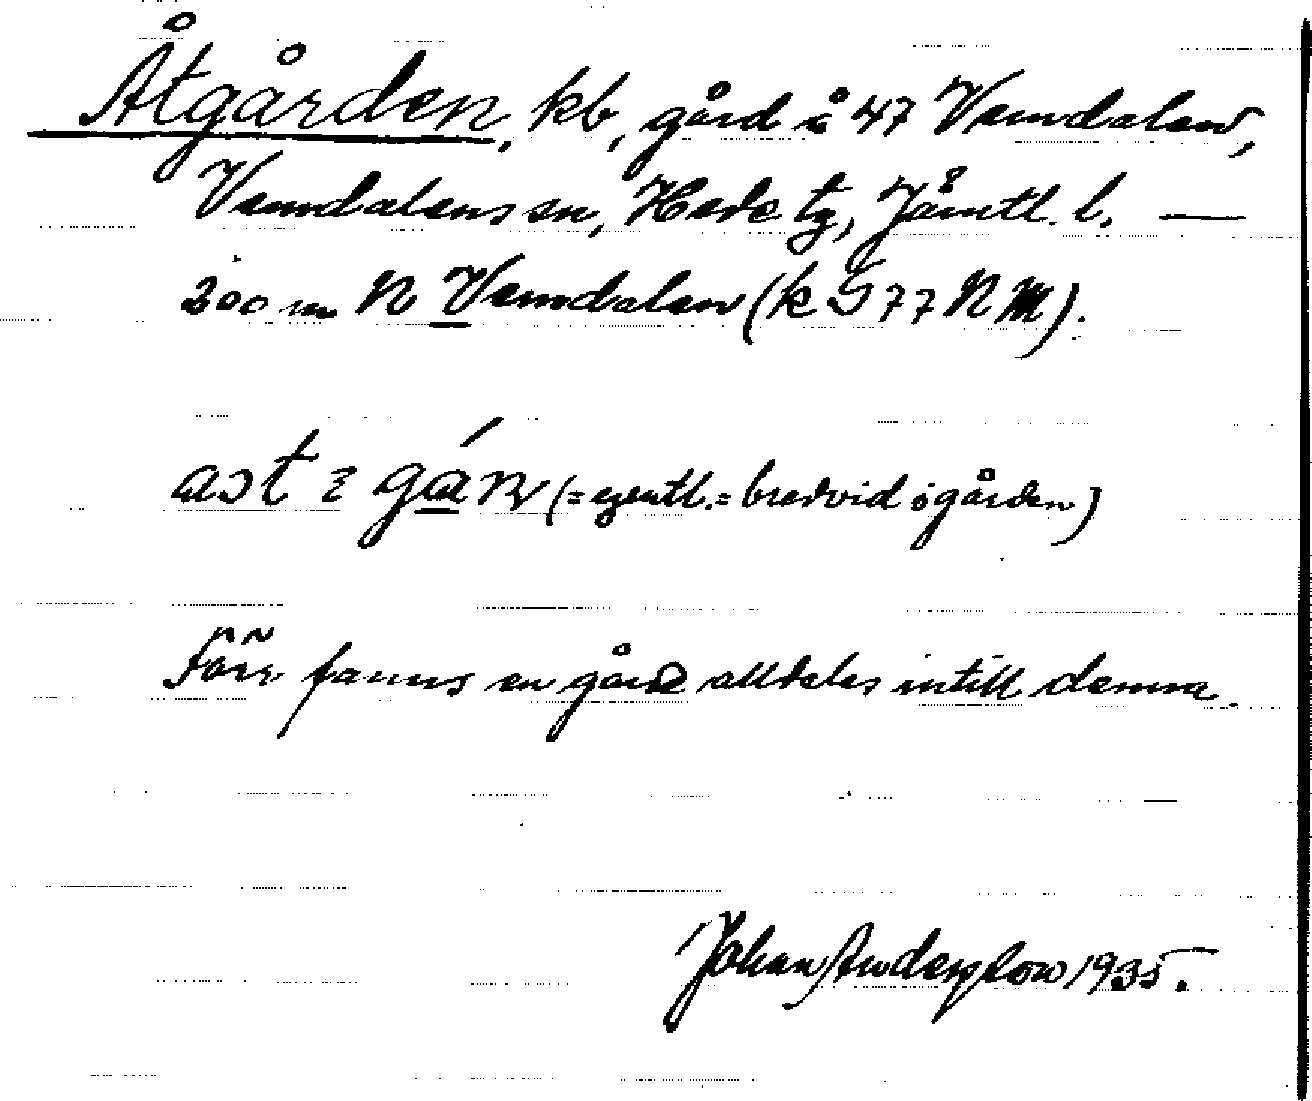 Åtgården, kb, gård å 47 Vemdalen,
Vemdalens sn, Hede tg, Jämtl. l. —
200 m N Vemdalen (k G 77 N M).
aɔt ꝛ gán (= egentl. = bredvid i gården)
Förr fanns en gård alldeles intill denna.
Johan Anderzelow 1935.